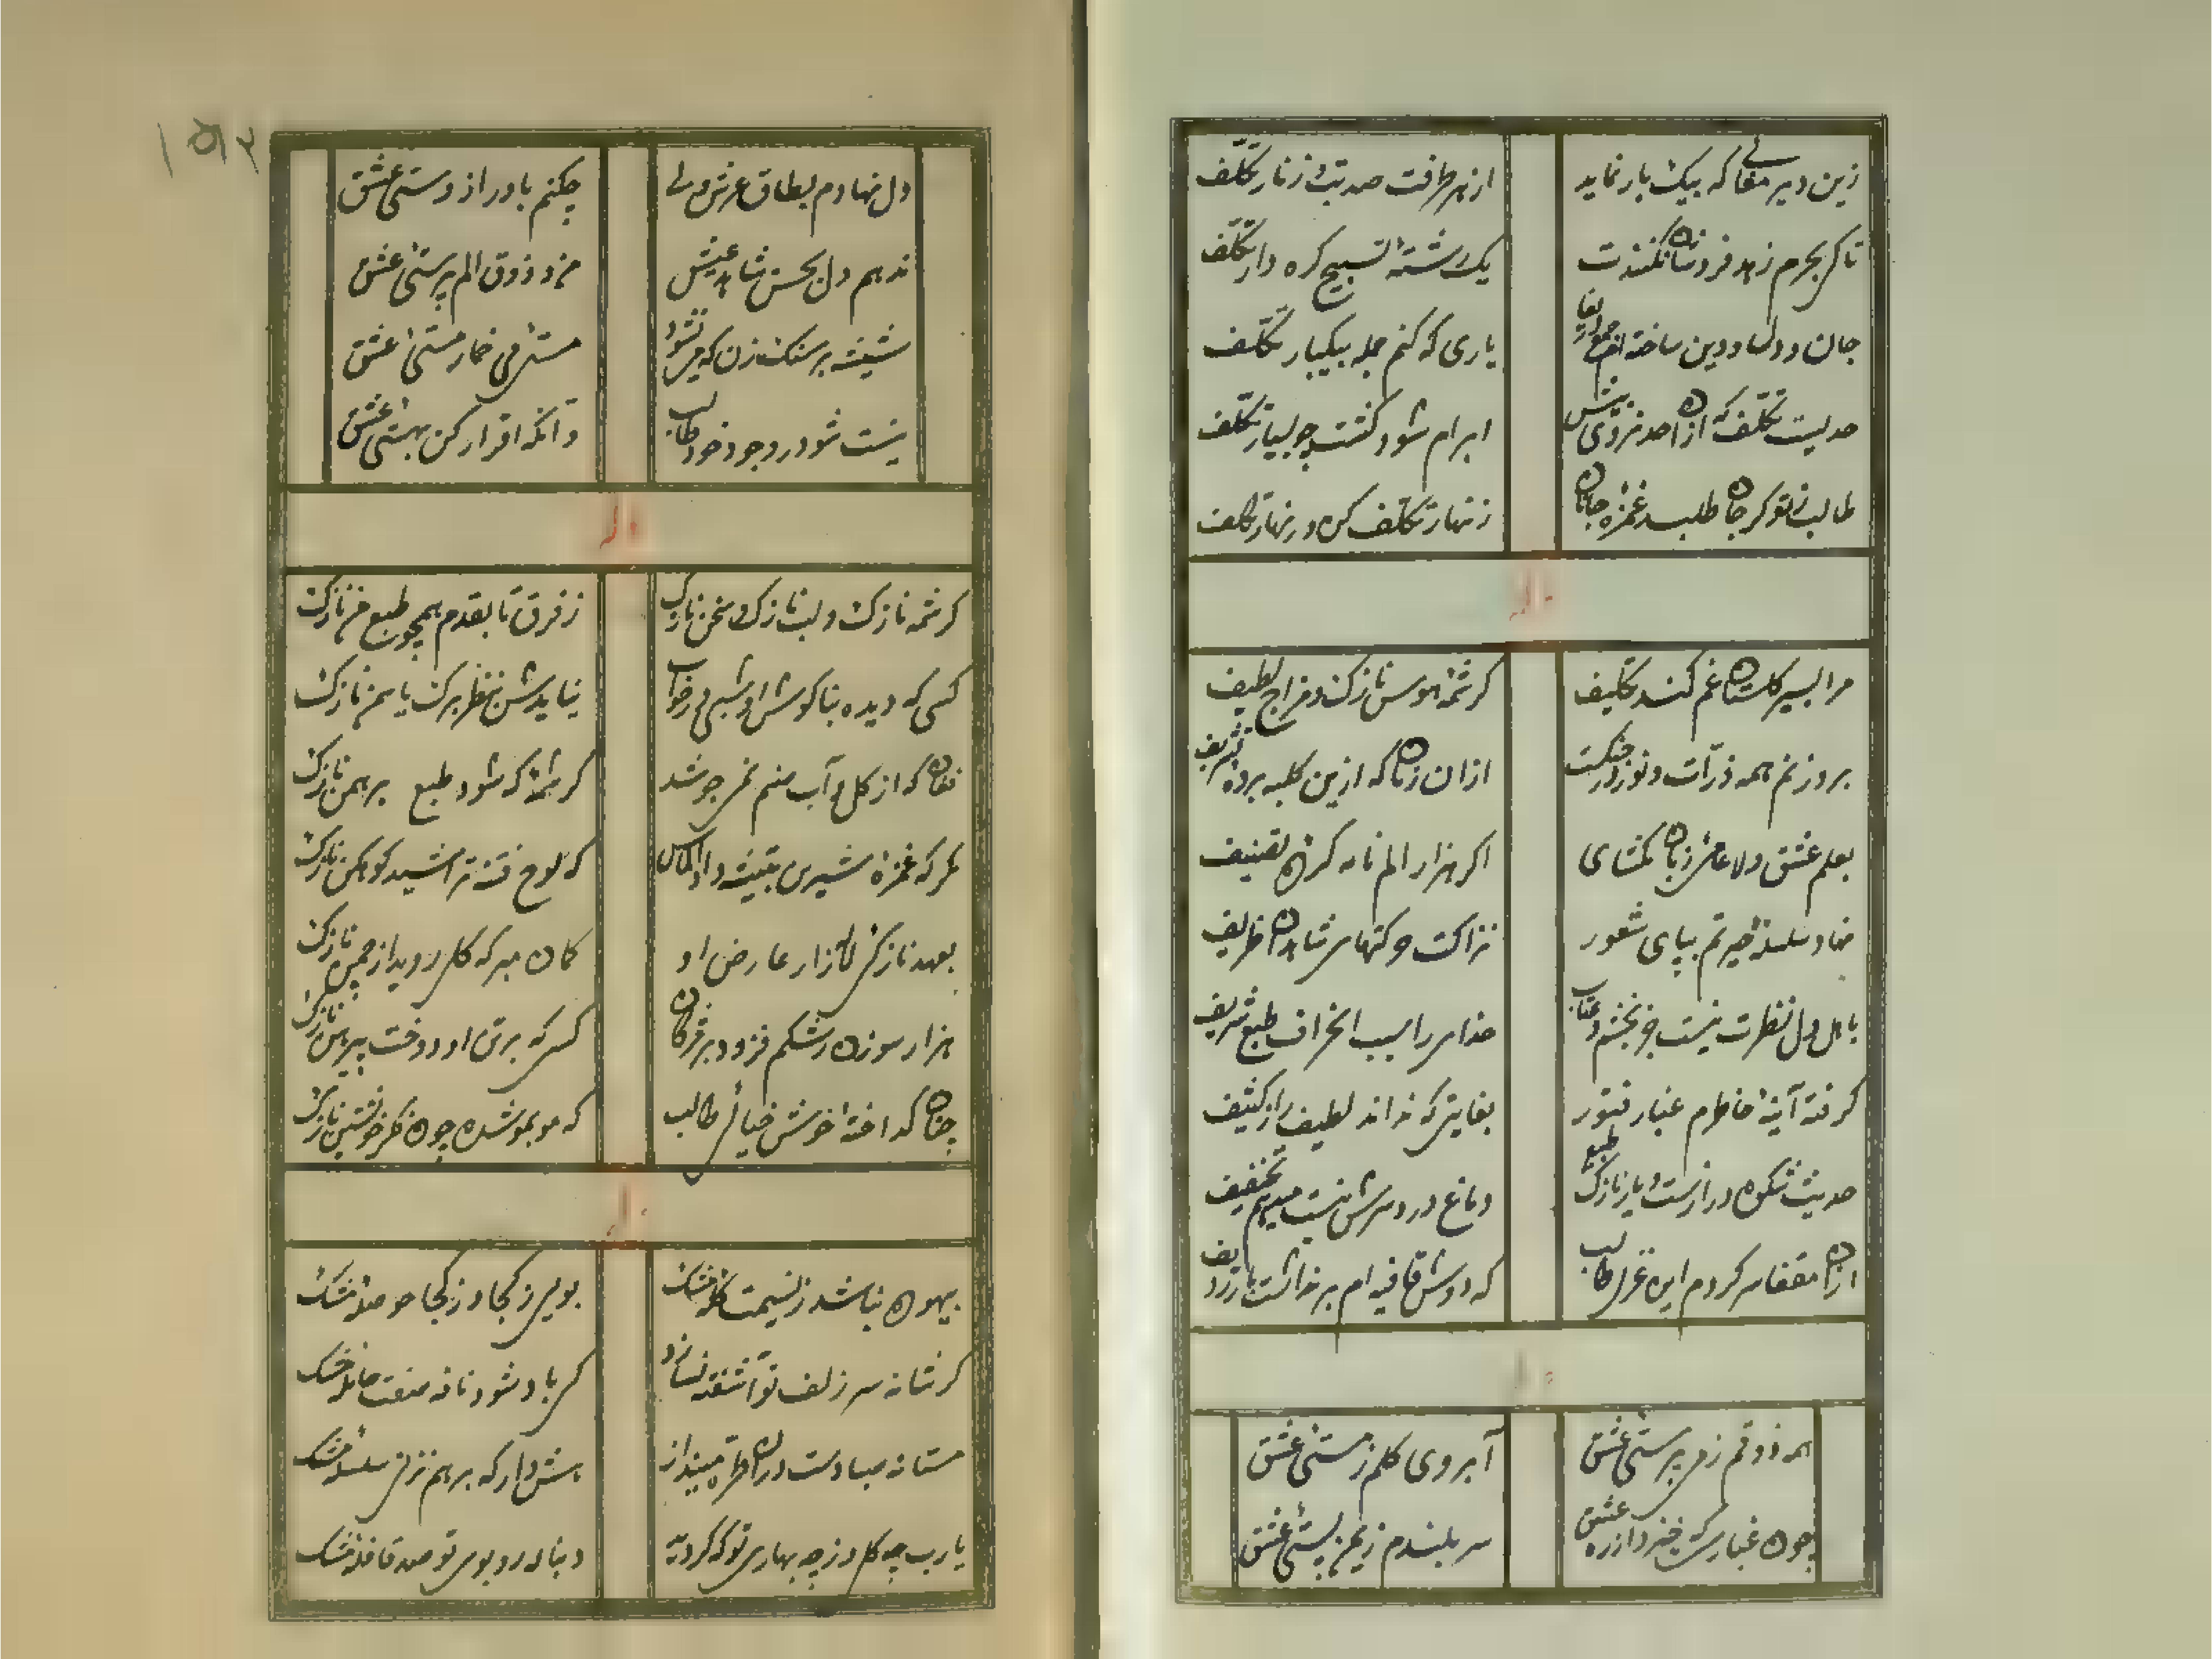 زین دیر مغانی که بیک بار نماید
از هر طرفت صد بت و زنار تکلف
تا کی بجرم زهد فروشان کندت
یک رشتهٔ تسبیح گره دار تکلف
جان و دل و دین ساخته ام جمع
یاری که کنم جمله بیکبار تکلف
حدیست تکلف که از حد نبری پیش
ابرام شود گشت چو بسیار تکلف
طالب ز تو گر جان طلبد غمزه جانان
زنهار تکلف کن و زنهار تکلف
مرا بسیر گلستان غم کند تکلیف
کرشمهٔ هوس نازک و مزاج لطیف
بروزنم همه ذرات و نور در جنگست
ازان زمان که ازین کلبه برده تشریف
بعلم عشق ولا عاشق زبان نگشای
اگر هزار الم نامه کردهٔ تصنیف
نهاد سلسلهٔ حیرتم بپای شعور
نزاکت حرکتهای شاهدان ظریف
باهل دل نظرت نیست جز بخشم و عتاب
خدای را سبب انحراف طبع شریف
گرفته آینهٔ خاطرم غبار فتور
بغایتی که نداند لطیف را ز کثیف
حدیث شکوه درازست و یار نازک طبع
دماغ درد سرش نیست میدهم تخفیف
ازان مقفا سر کردم این غزل طالب
که دوش قافیه ام بر نداشت بار ردیف
همه ذوقم ز می پرستی عشق
آبروی گلم ز مستی عشق
چون غباری که خیزد از ره عشق
سر بلندم ز یمن پستی عشق
۱۵۲
دل نهادم بطاق عرش ولی
چکنم باور از درستی عشق
ندهم دل بحسن شاهد عیش
مزد ذوق الم پرستی عشق
شیشه بر سنگ زن که می نشود
مستی می خمار مستی عشق
نیست شو در وجود خود طالب
وانگه اقرار کن بهستی عشق
وله
کرشمه نازک و لب نازک و سخن نازک
ز فرق تا بقدم همچو طبع من نازک
کسی که دیده بناگوش او شبی در خواب
نیایدش بنظر برگ یاسمن نازک
فغان که از گل و آب صنم نمی جوشد
کرشمهٔ که شود طبع برهمن نازک
مگر که غمزهٔ شیرین بتیشه داد الماس
که لوح فتنه تراشید کوهکن نازک
بعهد نازکی لاله زار عارض او
گمان مبر که گل روید از چمن نازک
هزار سوزن رشکم فزود بر مژگان
کسی که بر تن او دوخت پیرهن نازک
چنان گداخته خوش خیالی طالب
که مو بمو شده چون فکر خویشتن نازک
بیهوده نباشد ز نسیمت گلهٔ مشک
بوی ز کجا و ز کجا حوصلهٔ مشک
گر شانه سر زلف تو آشفته نسازد
کی باد شود نافه صفت حاملهٔ مشک
مستانه صبا دست در آن طره مینداز
هش دار که برهم نزنی سلسلهٔ مشک
یا رب چه گل و ز چه بهاری تو که کردت
دنباله رو بوی تو صد قافلهٔ مشک